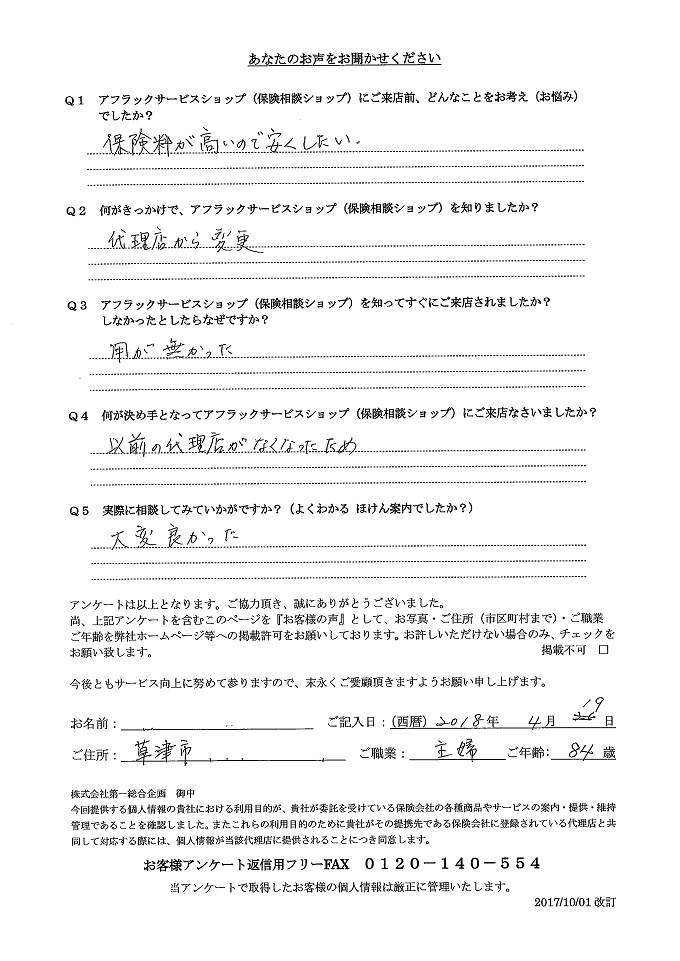 あなたのお声をお聞かせください
Q1 アフラックサービスショップ(保険相談ショップ)にご来店前、どんなことをお考え(お悩み)
でしたか?
保険料が高いので安くしたい.
Q2 何がきっかけで、アフラックサービスショップ(保険相談ショップ)を知りましたか?
代理店から変更
Q3 アフラックサービスショップ(保険相談ショップ)を知ってすぐにご来店されましたか?
しなかったとしたらなぜですか?
用が無かった
Q4 何が決め手となってアフラックサービスショップ(保険相談ショップ)にご来店なさいましたか?
以前の代理店がなくなったため
Q5 実際に相談してみていかがですか?(よくわかる ほけん案内でしたか?)
大変良かった
アンケートは以上となります。ご協力頂き、誠にありがとうございました。
尚、上記アンケートを含むこのページを『お客様の声』として、お写真・ご住所(市区町村まで)・ご職業
ご年齢を弊社ホームページ等への掲載許可をお願いしております。お許しいただけない場合のみ、チェックを
お願い致します。 掲載不可 □
今後ともサービス向上に努めて参りますので、末永くご愛顧頂きますようお願い申し上げます。
お名前: ご記入日:(西暦)2018年 4月 19日
ご住所: 草津市 ご職業: 主婦 ご年齢: 84歳
株式会社第一総合企画 御中
今回提供する個人情報の貴社における利用目的が、貴社が委託を受けている保険会社の各種商品やサービスの案内・提供・維持
管理であることを確認しました。またこれらの利用目的のために貴社がその提携先である保険会社に登録されている代理店と共
同して対応する際には、個人情報が当該代理店に提供されることにつき同意します。
お客様アンケート返信用フリーFAX 0120-140-554
当アンケートで取得したお客様の個人情報は厳正に管理いたします。
2017/10/01 改訂